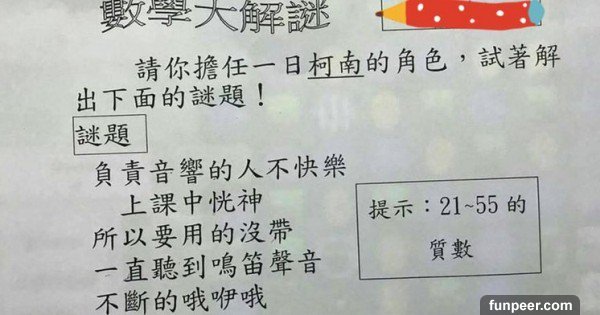 數學大解謎
請你擔任一日柯南的角色，試著解
出下面的謎題！
謎題
負責音響的人不快樂
上課中恍神
所以要用的沒帶
一直聽到鳴笛聲音
不斷的哦咿哦
提示：21~55 的
質數
funpeer.com